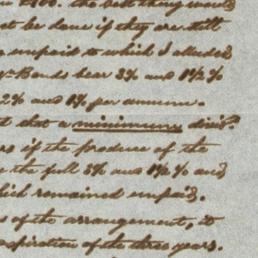 £100. The best thing would
not be done if they are still
unpaid to which I alluded
Bonds bear 3% and 1½%
2% and 1% per annum.
that a minimum divid.
if the produce of the
the full 3% and 1½% and
which remained unpaid.
of the arrangement, it
expiration of the three years.